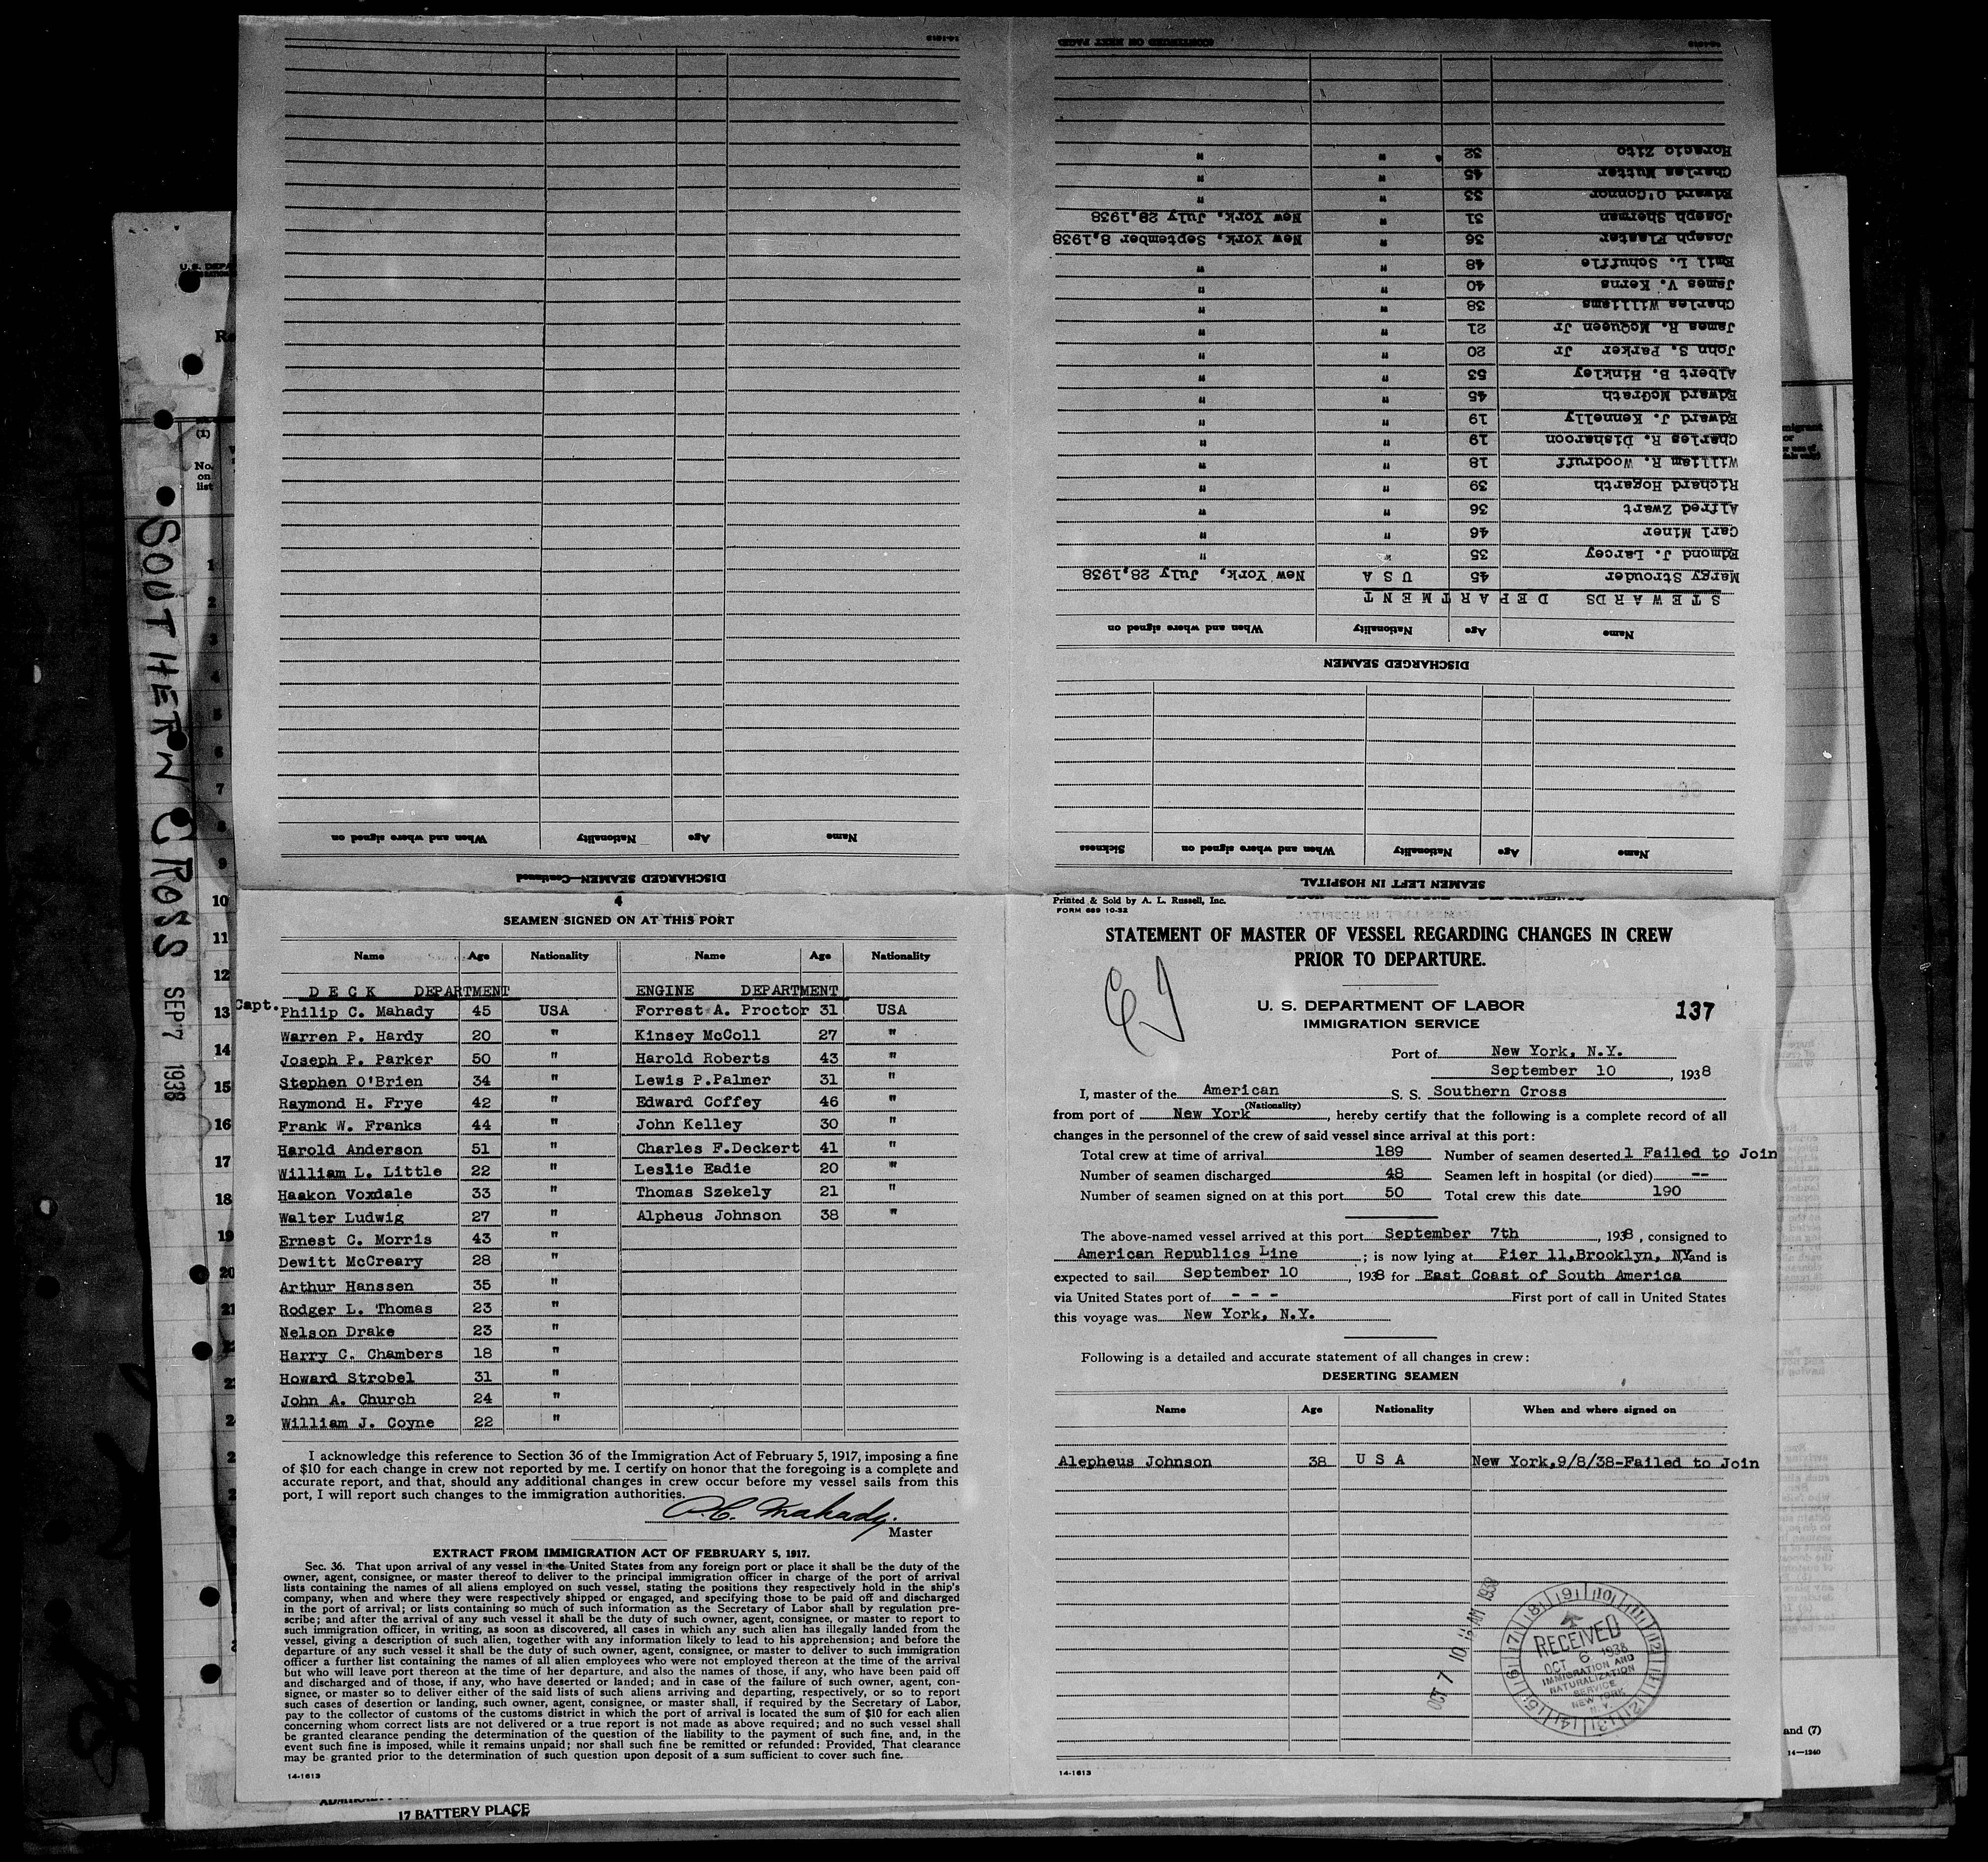 SOUTHERN CROSS SEP 7 1938
Printed & Sold by A. L. Russell, Inc.
FORM 689 10-32
STATEMENT OF MASTER OF VESSEL REGARDING CHANGES IN CREW
PRIOR TO DEPARTURE.
U. S. DEPARTMENT OF LABOR
IMMIGRATION SERVICE
137
Port of New York, N.Y.
September 10, 1938
I, master of the American S. S. Southern Cross
(Nationality)
from port of New York, hereby certify that the following is a complete record of all
changes in the personnel of the crew of said vessel since arrival at this port:
Total crew at time of arrival 189 Number of seamen deserted 1 Failed to Join
Number of seamen discharged 48 Seamen left in hospital (or died) --
Number of seamen signed on at this port 50 Total crew this date 190
The above-named vessel arrived at this port September 7th, 1938, consigned to
American Republics Line; is now lying at Pier 11,Brooklyn, NY and is
expected to sail September 10, 1938 for East Coast of South America
via United States port of - - - First port of call in United States
this voyage was New York, N.Y.
Following is a detailed and accurate statement of all changes in crew:
DESERTING SEAMEN
Name Age Nationality When and where signed on
Alepheus Johnson 38 U S A New York,9/8/38-Failed to Join
OCT 7 10 AM 1938
RECEIVED
OCT 6 1938
IMMIGRATION AND
NATURALIZATION
SERVICE
NEW YORK
14-1613
SEAMEN LEFT IN HOSPITAL
Name Age Nationality When and where signed on Sickness
DISCHARGED SEAMEN
Name Age Nationality When and where signed on
STEWARDS DEPARTMENT
Margy Strouder 45 U S A New York, July 28,1938
Edmond J. Larcey 35 " "
Carl Miner 46 " "
Alfred Zwart 36 " "
Richard Hogarth 39 " "
William R. Woodruff 18 " "
Charles R. Disharoon 19 " "
Edward J. Kennelly 19 " "
Edward McGrath 45 " "
Albert B. Hinkley 53 " "
John S. Parker Jr 20 " "
James R. McQueen Jr 21 " "
Charles Williams 38 " "
James V. Kerns 40 " "
Emil L. Schuffle 48 " "
Joseph Flaster 36 " New York, September 8,1938
Joseph Sherman 31 " New York, July 28,1938
Edward O'Connor 33 " "
Charles Mutter 45 " "
Horacio Zito 32 " "
(CONTINUED ON NEXT PAGE)
14-1613
DISCHARGED SEAMEN—Continued
Name Age Nationality When and where signed on
14-1613
4
SEAMEN SIGNED ON AT THIS PORT
Name Age Nationality Name Age Nationality
DECK DEPARTMENT ENGINE DEPARTMENT
Capt. Philip C. Mahady 45 USA Forrest A. Proctor 31 USA
Warren P. Hardy 20 " Kinsey McColl 27 "
Joseph P. Parker 50 " Harold Roberts 43 "
Stephen O'Brien 34 " Lewis P.Palmer 31 "
Raymond H. Frye 42 " Edward Coffey 46 "
Frank W. Franks 44 " John Kelley 30 "
Harold Anderson 51 " Charles F.Deckert 41 "
William L. Little 22 " Leslie Eadie 20 "
Haakon Voxdale 33 " Thomas Szekely 21 "
Walter Ludwig 27 " Alpheus Johnson 38 "
Ernest C. Morris 43 "
Dewitt McCreary 28 "
Arthur Hanssen 35 "
Rodger L. Thomas 23 "
Nelson Drake 23 "
Harry C. Chambers 18 "
Howard Strobel 31 "
John A. Church 24 "
William J. Coyne 22 "
I acknowledge this reference to Section 36 of the Immigration Act of February 5, 1917, imposing a fine
of $10 for each change in crew not reported by me. I certify on honor that the foregoing is a complete and
accurate report, and that, should any additional changes in crew occur before my vessel sails from this
port, I will report such changes to the immigration authorities.
P.C. Mahady.
Master
EXTRACT FROM IMMIGRATION ACT OF FEBRUARY 5, 1917.
Sec. 36. That upon arrival of any vessel in the United States from any foreign port or place it shall be the duty of the
owner, agent, consignee, or master thereof to deliver to the principal immigration officer in charge of the port of arrival
lists containing the names of all aliens employed on such vessel, stating the positions they respectively hold in the ship's
company, when and where they were respectively shipped or engaged, and specifying those to be paid off and discharged
in the port of arrival; or lists containing so much of such information as the Secretary of Labor shall by regulation pre-
scribe; and after the arrival of any such vessel it shall be the duty of such owner, agent, consignee, or master to report to
such immigration officer, in writing, as soon as discovered, all cases in which any such alien has illegally landed from the
vessel, giving a description of such alien, together with any information likely to lead to his apprehension; and before the
departure of any such vessel it shall be the duty of such owner, agent, consignee, or master to deliver to such immigration
officer a further list containing the names of all alien employees who were not employed thereon at the time of the arrival
but who will leave port thereon at the time of her departure, and also the names of those, if any, who have been paid off
and discharged and of those, if any, who have deserted or landed; and in case of the failure of such owner, agent, con-
signee, or master so to deliver either of the said lists of such aliens arriving and departing, respectively, or so to report
such cases of desertion or landing, such owner, agent, consignee, or master shall, if required by the Secretary of Labor,
pay to the collector of customs of the customs district in which the port of arrival is located the sum of $10 for each alien
concerning whom correct lists are not delivered or a true report is not made as above required; and no such vessel shall
be granted clearance pending the determination of the question of the liability to the payment of such fine, and, in the
event such fine is imposed, while it remains unpaid; nor shall such fine be remitted or refunded: Provided, That clearance
may be granted prior to the determination of such question upon deposit of a sum sufficient to cover such fine.
14-1613
17 BATTERY PLACE
and (7)
14—1240